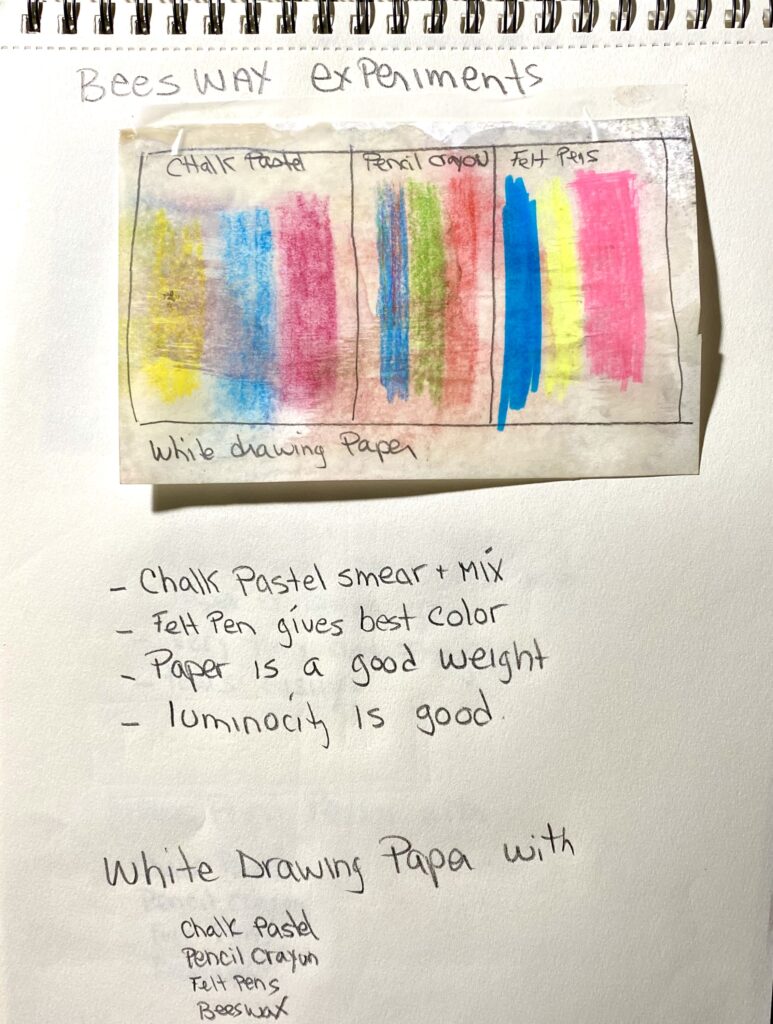 Bees WAX experiments
Chalk Pastel
Pencil crayon
Felt Pens
White drawing Paper
- Chalk Pastel smear + Mix
- Felt Pen gives best color
- Paper is a good weight
- luminocity is good.
White Drawing Paper with
Chalk Pastel
Pencil Crayon
Felt Pens
Beeswax